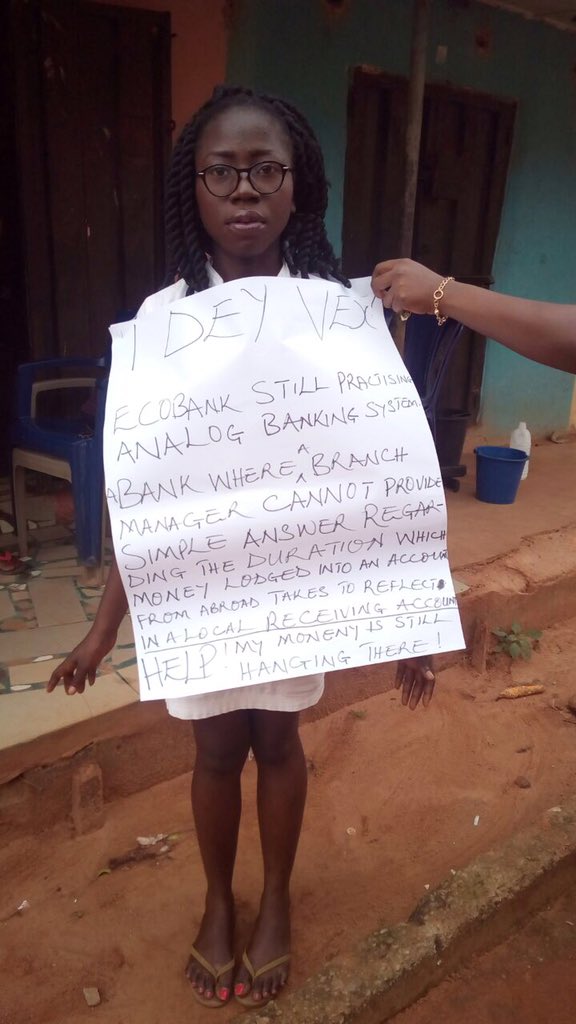 "I DEY VEX"
ECOBANK STILL PRACTISING
ANALOG BANKING SYSTEM.
A BANK WHERE A BRANCH
MANAGER CANNOT PROVIDE
SIMPLE ANSWER REGAR-
DING THE DURATION WHICH
MONEY LODGED INTO AN ACCOUNT
FROM ABROAD TAKES TO REFLECT
IN A LOCAL RECEIVING ACCOUNT
HELP! MY MONENY IS STILL
HANGING THERE!